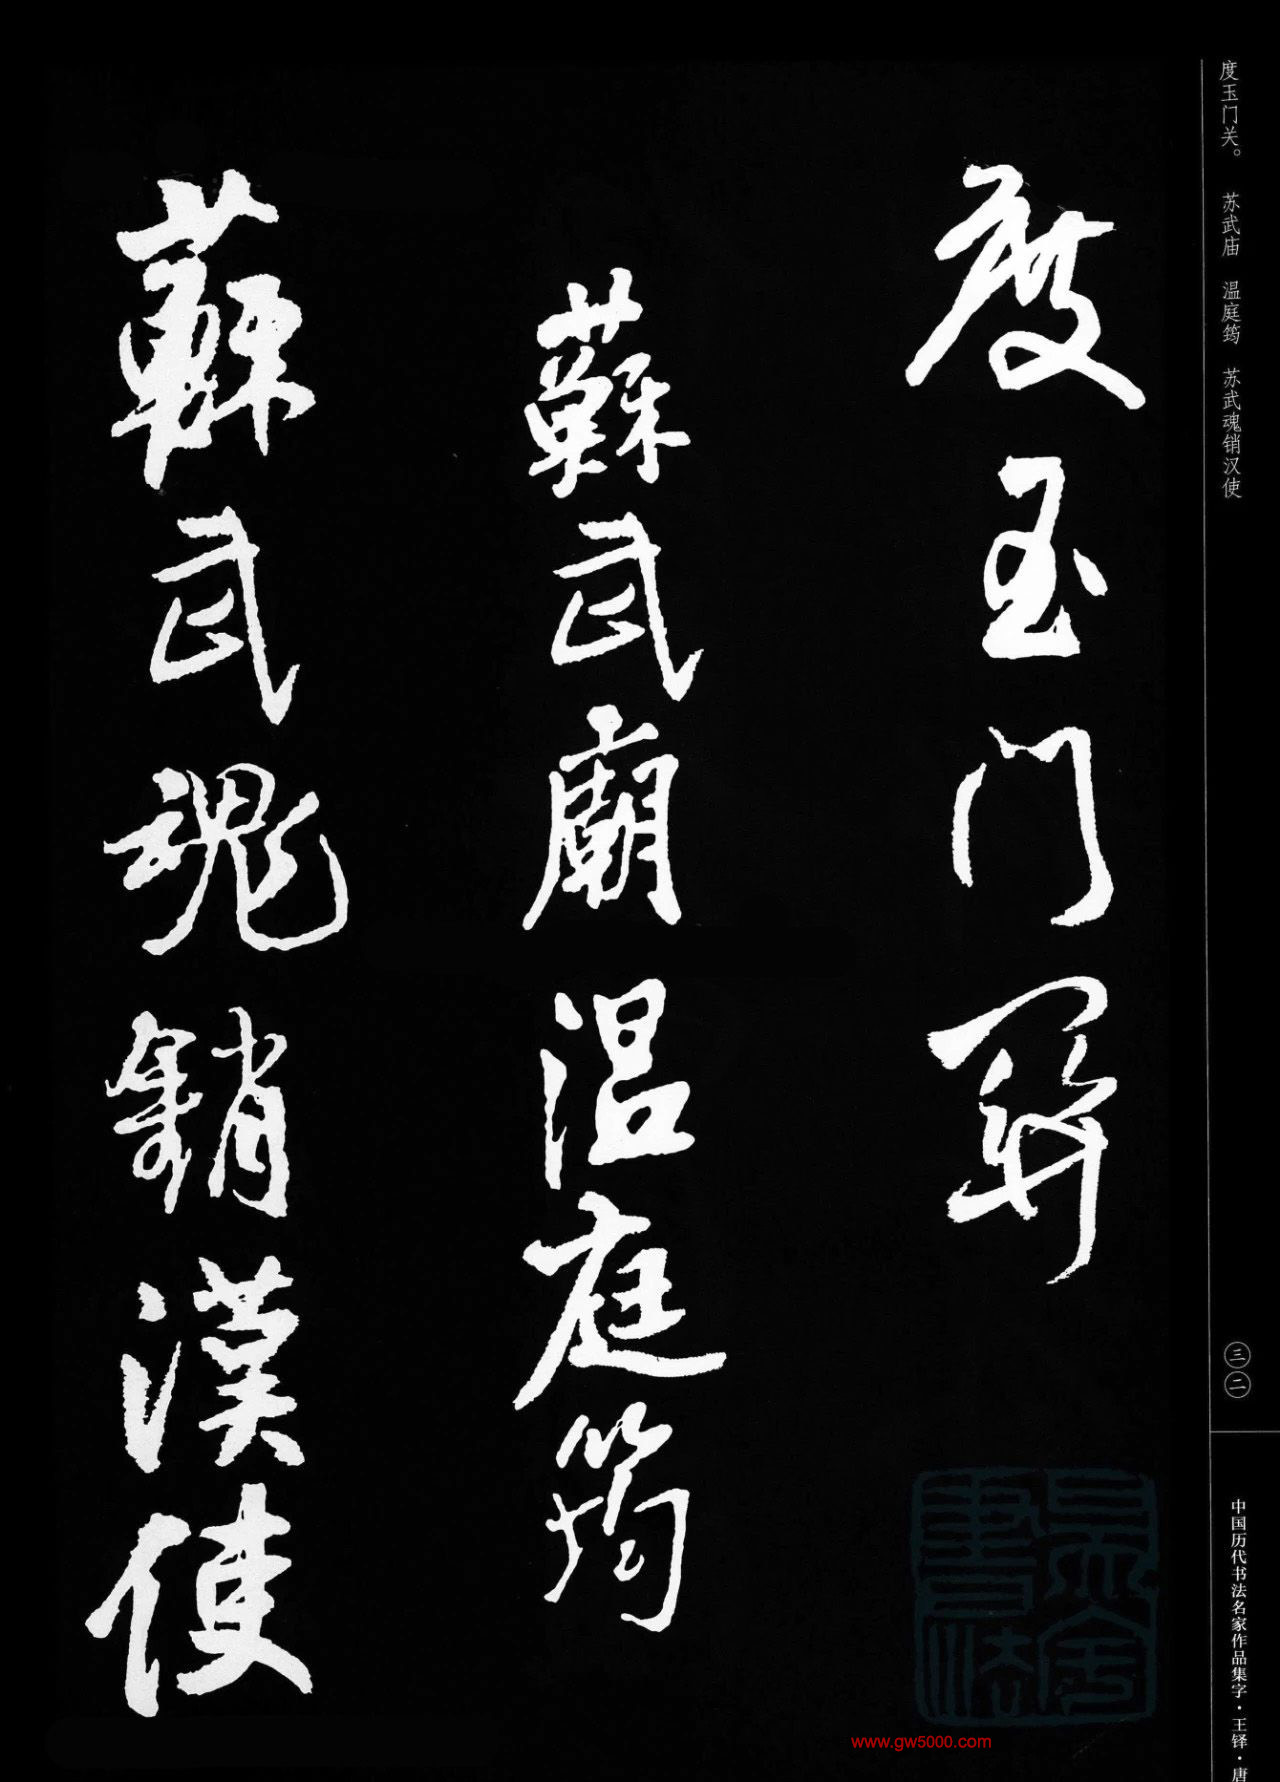 度玉门关。 苏武庙 温庭筠 苏武魂销汉使
度玉門關
蘇武廟温庭筠
蘇武魂銷漢使
三二
中国历代书法名家作品集字·王铎·唐
www.gw5000.com